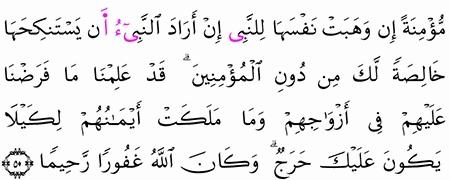 مُّؤْمِنَةً إِن وَهَبَتْ نَفْسَهَا لِلنَّبِيِّ إِنْ أَرَادَ ٱلنَّبِيُّ أَن يَسْتَنكِحَهَا
خَالِصَةً لَّكَ مِن دُونِ ٱلْمُؤْمِنِينَ ۗ قَدْ عَلِمْنَا مَا فَرَضْنَا
عَلَيْهِمْ فِىٓ أَزْوَٰجِهِمْ وَمَا مَلَكَتْ أَيْمَٰنُهُمْ لِكَيْلَا
يَكُونَ عَلَيْكَ حَرَجٌ ۗ وَكَانَ ٱللَّهُ غَفُورًا رَّحِيمًا ٥٠